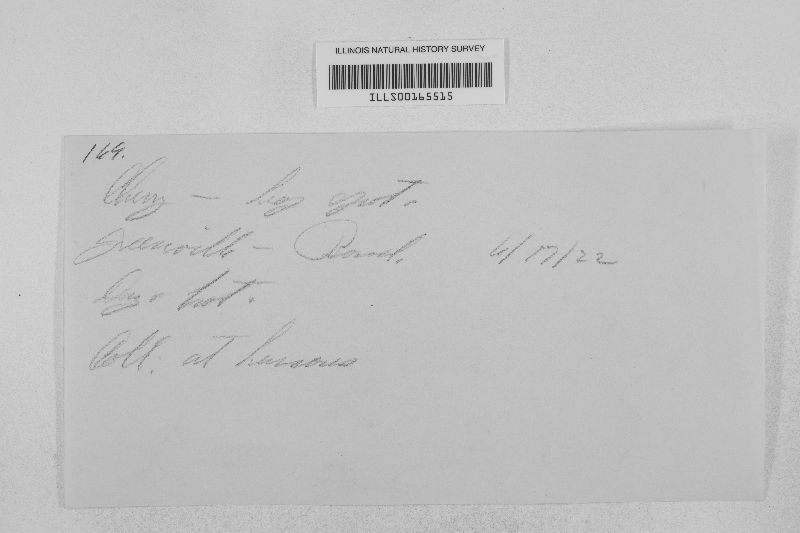 ILLINOIS NATURAL HISTORY SURVEY
ILLS00165515
169.
Cherry – leaf spot.
Greenville – Bond. 6/17/22
Dry & hot.
Coll. at